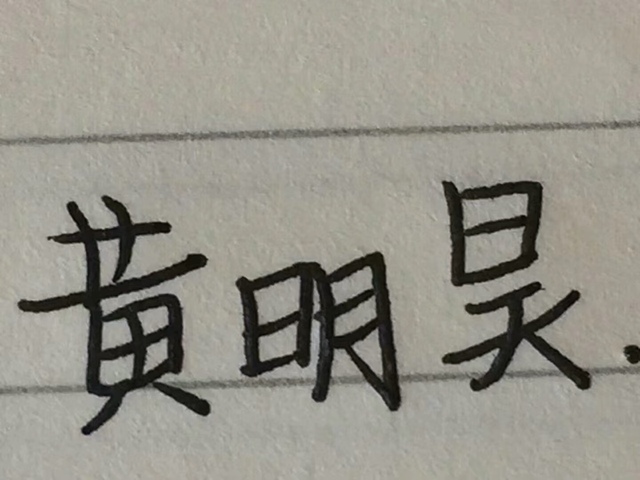 黄明昊.